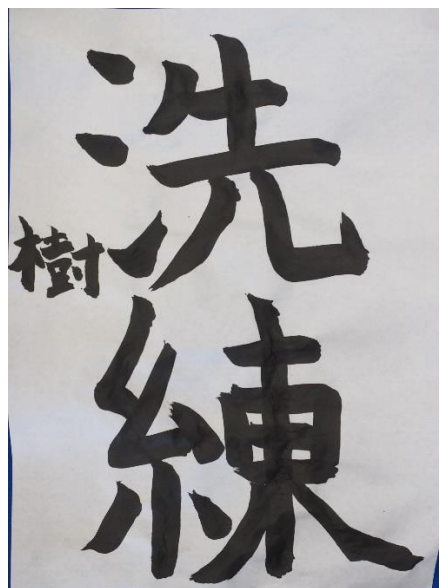 洗練
樹